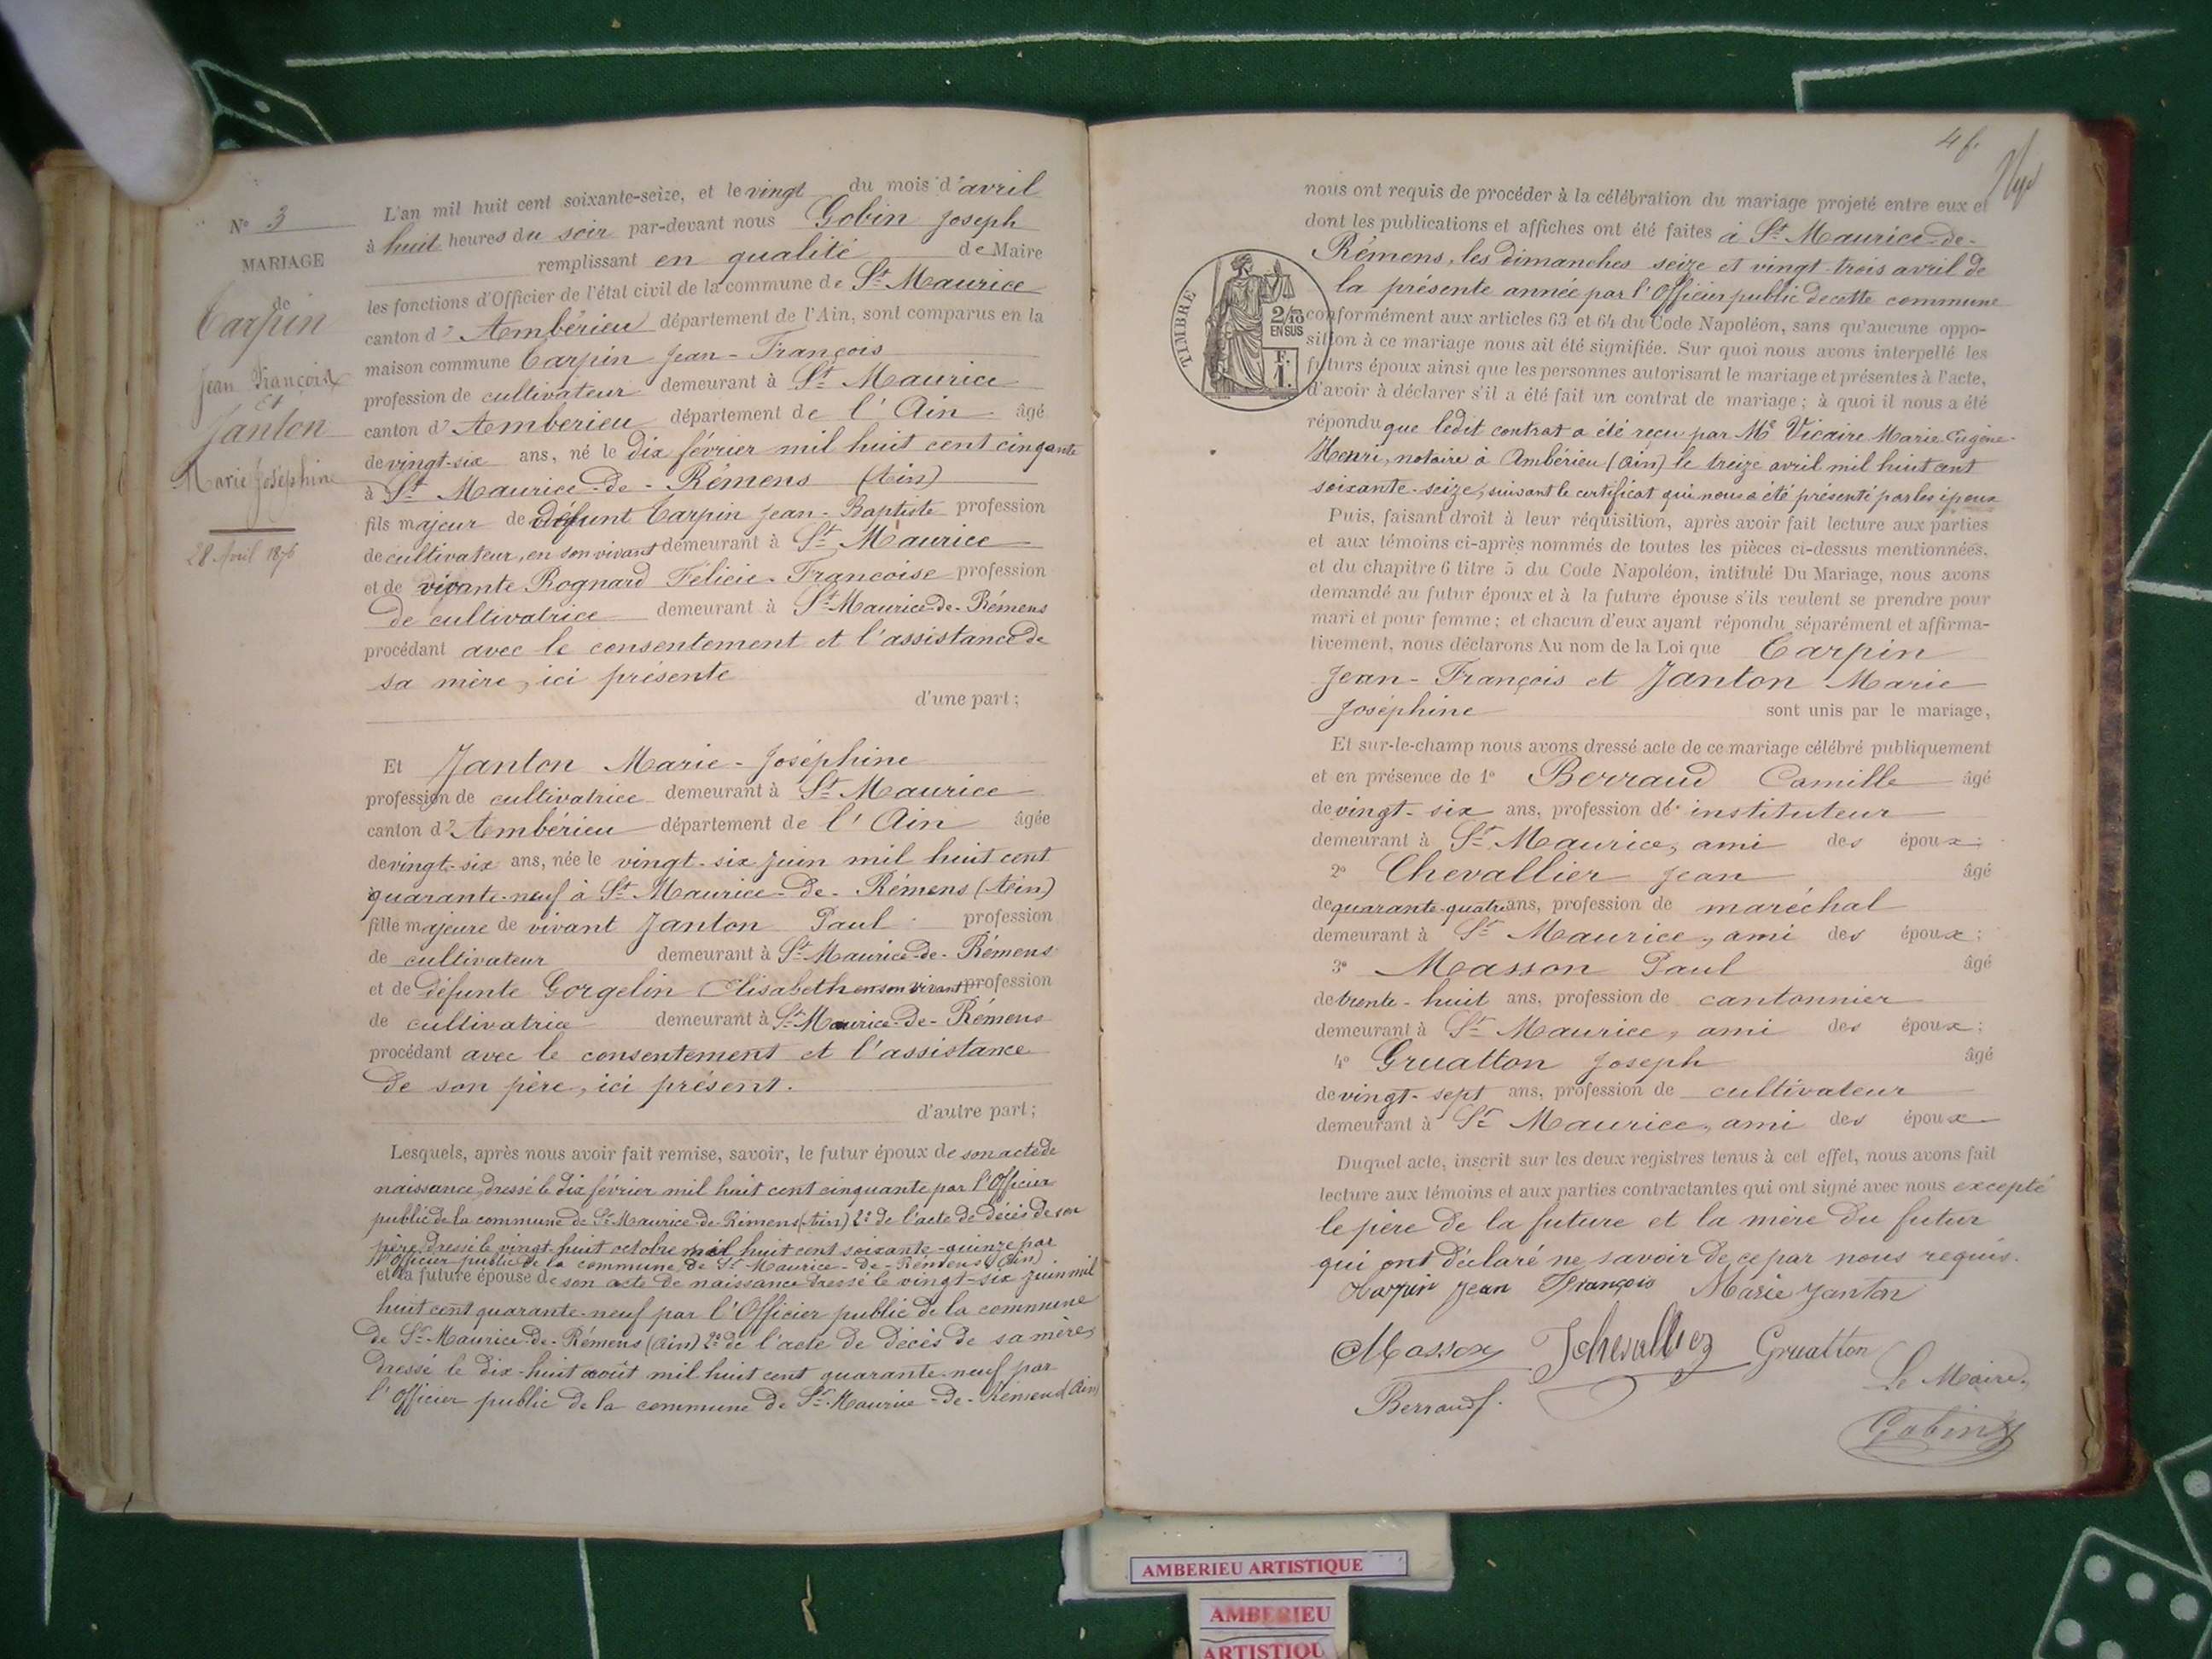 N° 3
MARIAGE
de
Carpin
Jean François
Et
Janton
Marie Joséphine
28 Avril 1876
L'an mil huit cent soixante-seize, et le vingt du mois d'avril
à huit heures du soir par-devant nous Gobin Joseph
remplissant en qualité de Maire
les fonctions d'Officier de l'état civil de la commune de St Maurice
canton d' Ambérieu département de l'Ain, sont comparus en la
maison commune Carpin Jean-François
profession de cultivateur demeurant à St Maurice
canton d' Amberieu département de l'Ain âgé
de vingt-six ans, né le dix février mil huit cent cinquante
à St Maurice-de-Rémens (Ain)
fils majeur de défunt Carpin Jean-Baptiste profession
de cultivateur, en son vivant demeurant à St Maurice
et de vivante Rognard Félicie-Francoise profession
de cultivatrice demeurant à St Maurice-de-Rémens
procédant avec le consentement et l'assistance de
sa mère, ici présente
d'une part;
Et Janton Marie-Joséphine
profession de cultivatrice demeurant à St Maurice
canton d' Ambérieu département de l'Ain âgée
de vingt-six ans, née le vingt-six juin mil huit cent
quarante-neuf à St Maurice-de-Rémens (Ain)
fille majeure de vivant Janton Paul profession
de cultivateur demeurant à St Maurice-de-Rémens
et de défunte Gorgelin Elisabeth en son vivant profession
de cultivatrice demeurant à St Maurice-de-Rémens
procédant avec le consentement et l'assistance
de son père, ici présent.
d'autre part;
Lesquels, après nous avoir fait remise, savoir, le futur époux de son acte de
naissance, dressé le dix février mil huit cent cinquante par l'Officier
public de la commune de St Maurice-de-Rémens (Ain) 2° de l'acte de décès de son
père dressé le vingt-huit octobre mil huit cent soixante-quinze par
l'Officier public de la commune de St Maurice-de-Rémens (Ain)
et la future épouse de son acte de naissance dressé le vingt-six juin mil
huit cent quarante-neuf par l'Officier public de la commune
de St Maurice-de-Rémens (Ain) 2° de l'acte de décès de sa mère,
dressé le dix-huit août mil huit cent quarante-neuf par
l'Officier public de la commune de St Maurice-de-Rémens (Ain)
4 f.
nous ont requis de procéder à la célébration du mariage projeté entre eux et
dont les publications et affiches ont été faites à St Maurice-de-
Rémens, les dimanches seize et vingt-trois avril de
la présente année par l'Officier public de cette commune
TIMBRE
2/10
EN SUS
F.
1.
conformément aux articles 63 et 64 du Code Napoléon, sans qu'aucune oppo-
sition à ce mariage nous ait été signifiée. Sur quoi nous avons interpellé les
futurs époux ainsi que les personnes autorisant le mariage et présentes à l'acte,
d'avoir à déclarer s'il a été fait un contrat de mariage; à quoi il nous a été
répondu que ledit contrat a été recu par Me Vicaire Marie Eugène-
Henri, notaire à Ambérieu (Ain) le treize avril mil huit cent
soixante-seize, suivant le certificat qui nous a été présenté par les époux
Puis, faisant droit à leur réquisition, après avoir fait lecture aux parties
et aux témoins ci-après nommés de toutes les pièces ci-dessus mentionnées,
et du chapitre 6 titre 5 du Code Napoléon, intitulé Du Mariage, nous avons
demandé au futur époux et à la future épouse s'ils veulent se prendre pour
mari et pour femme; et chacun d'eux ayant répondu séparément et affirma-
tivement, nous déclarons Au nom de la Loi que Carpin
Jean-François et Janton Marie
Joséphine sont unis par le mariage,
Et sur-le-champ nous avons dressé acte de ce mariage célébré publiquement
et en présence de 1° Berraud Camille âgé
de vingt-six ans, profession de instituteur
demeurant à St Maurice, ami des époux;
2° Chevallier Jean âgé
de quarante-quatre ans, profession de maréchal
demeurant à St Maurice, ami des époux;
3° Masson Paul âgé
de trente-huit ans, profession de cantonnier
demeurant à St Maurice, ami des époux;
4° Gruatton Joseph âgé
de vingt-sept ans, profession de cultivateur
demeurant à St Maurice, ami des époux
Duquel acte, inscrit sur les deux registres tenus à cet effet, nous avons fait
lecture aux témoins et aux parties contractantes qui ont signé avec nous excepté
le père de la future et la mère du futur
qui ont déclaré ne savoir de ce par nous requis.
Carpin Jean François Marie Janton
Masson J Chevallier Gruatton
Berraud
Le Maire,
Gobin
AMBERIEU ARTISTIQUE
AMBERIEU
ARTISTIQU